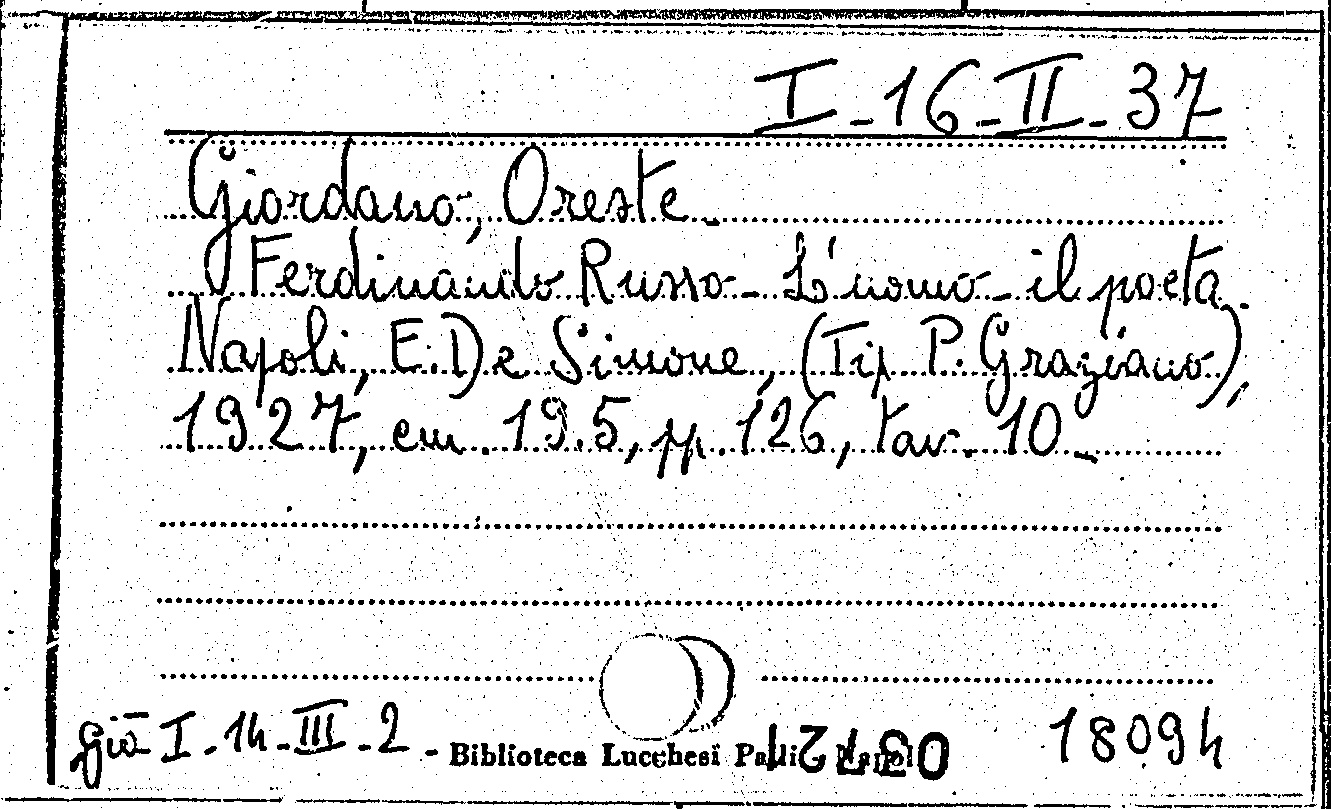 I-16-II-37
Giordano, Oreste.
Ferdinando Russo - L'uomo - il poeta.
Napoli, E. De Simone, (Tip. P. Graziano),
1927, cm. 19.5, pp. 126, tav. 10.
già I-14-III-2 - Biblioteca Lucchesi Palli 18094